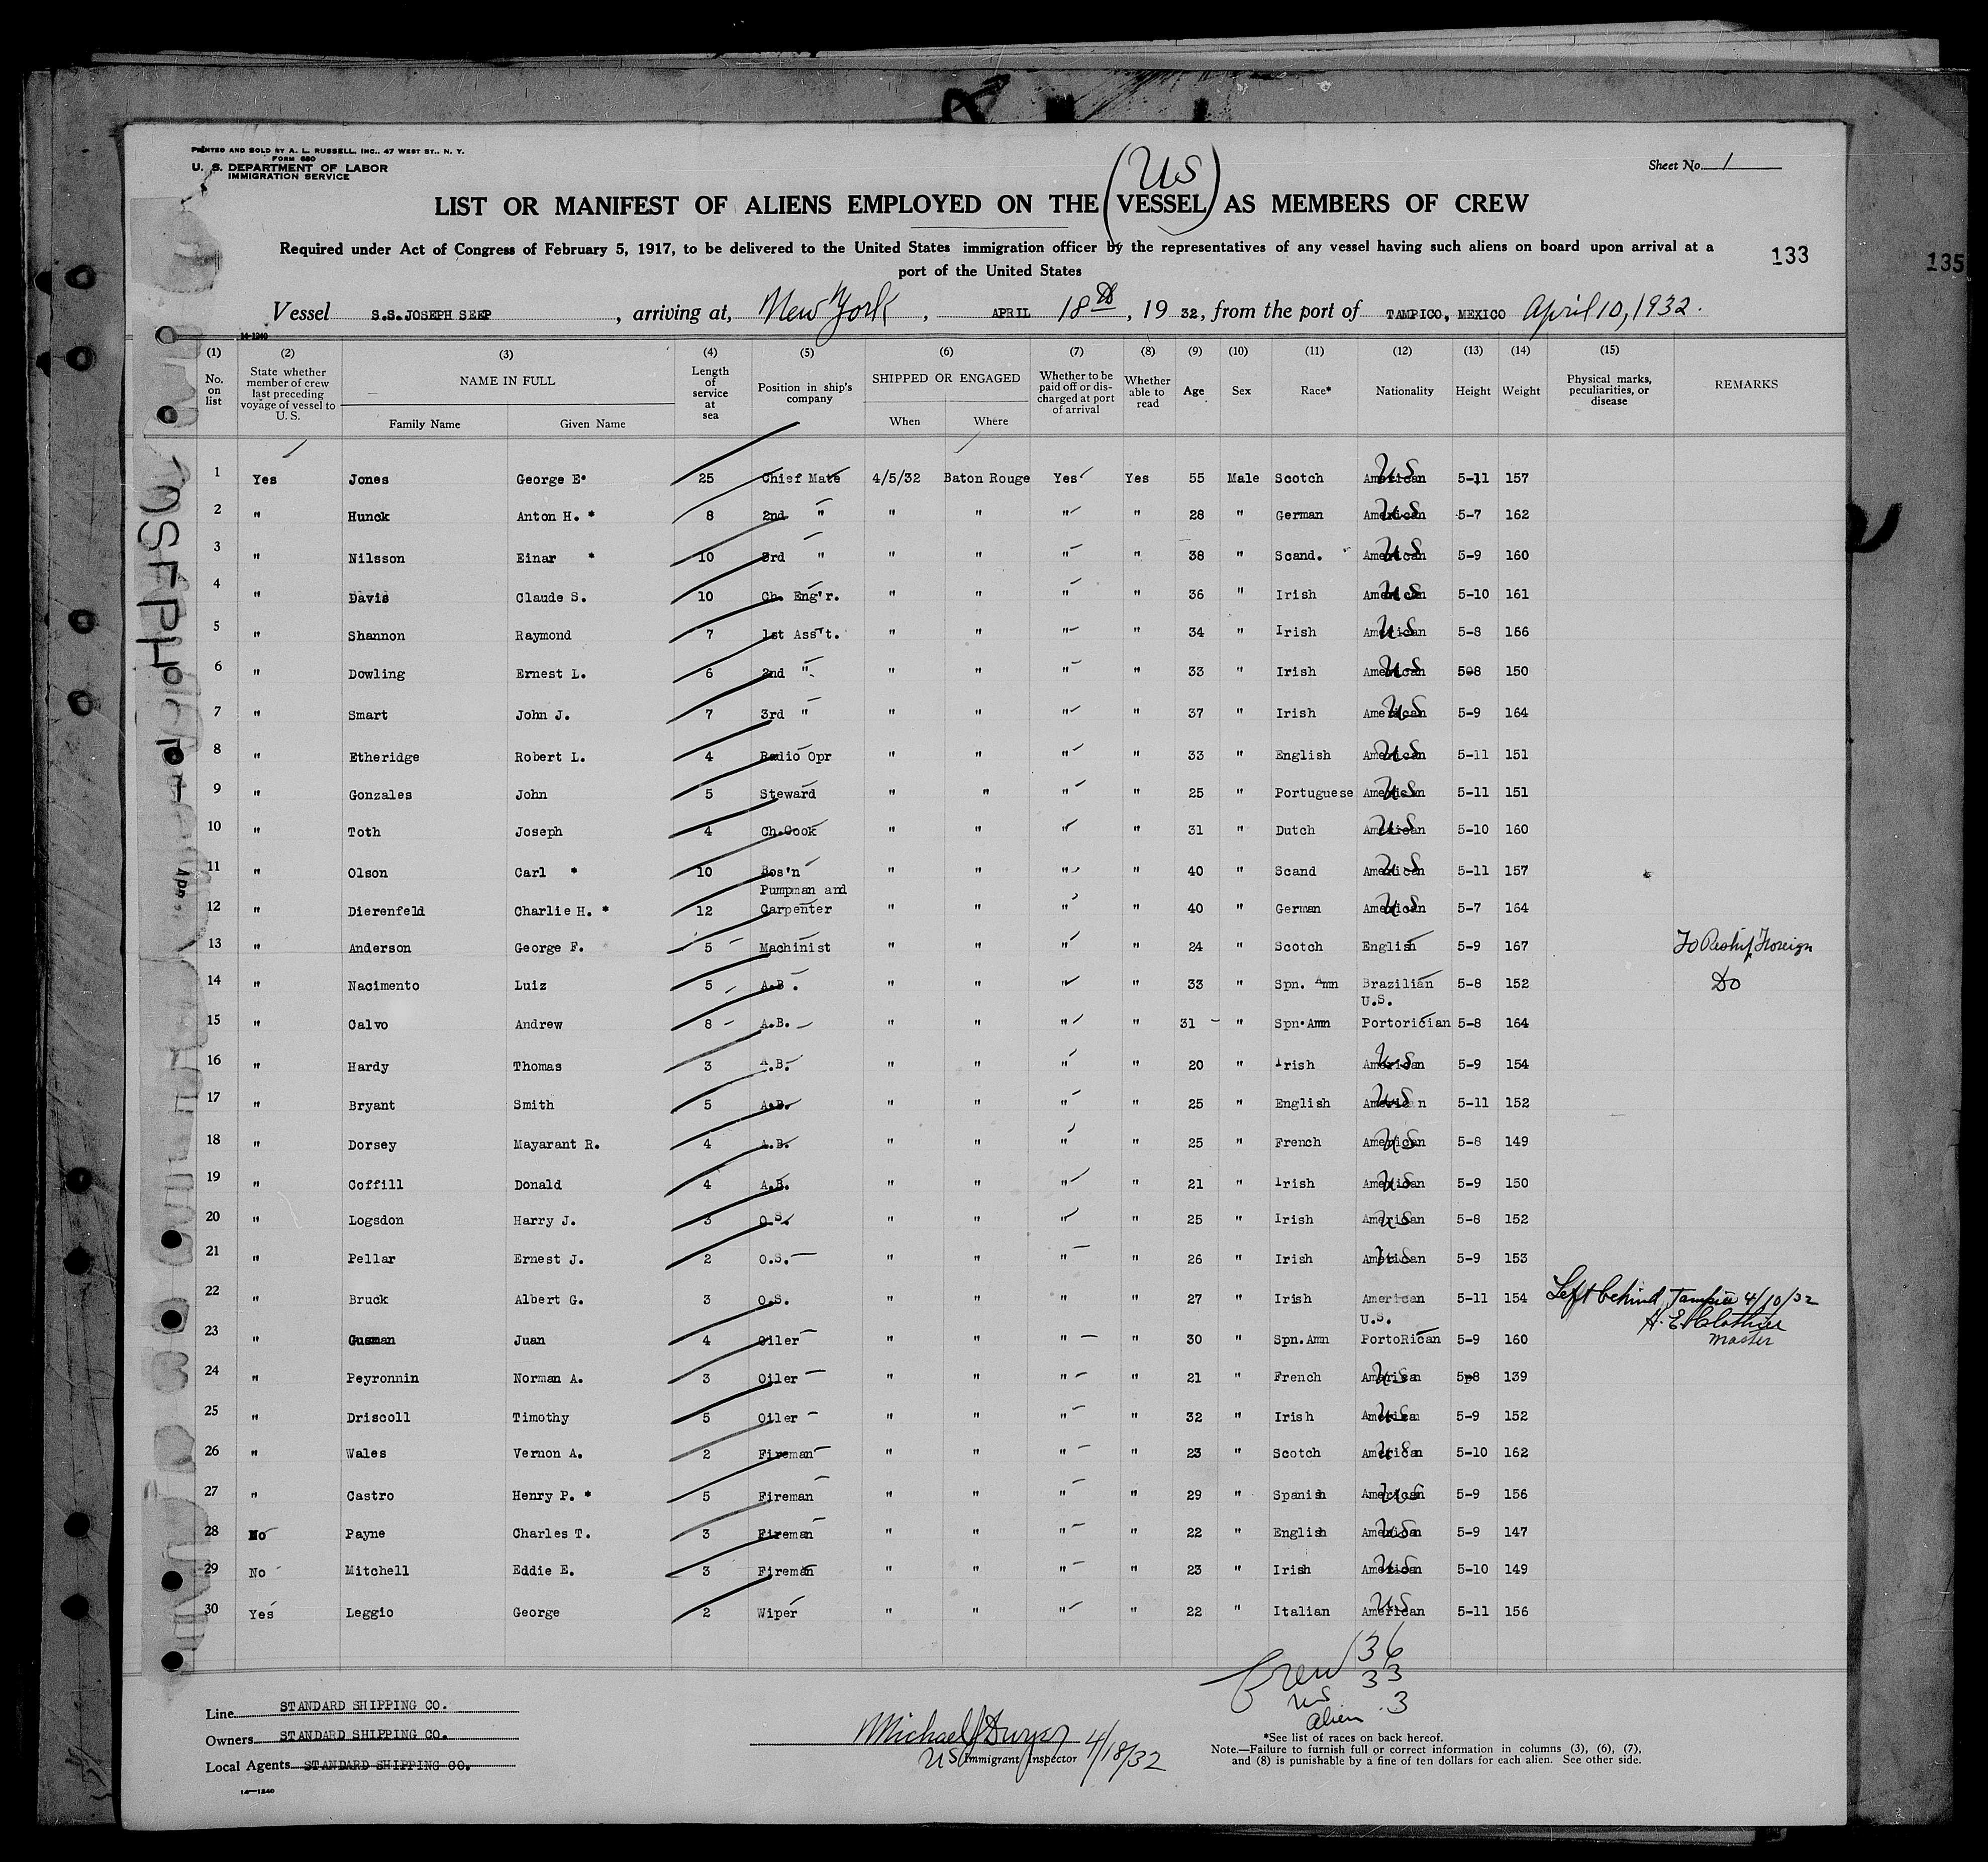 PRINTED AND SOLD BY A. L. RUSSELL, INC., 47 WEST ST., N. Y.
FORM 680
U. S. DEPARTMENT OF LABOR
IMMIGRATION SERVICE
Sheet No. 1
(US)
LIST OR MANIFEST OF ALIENS EMPLOYED ON THE VESSEL AS MEMBERS OF CREW
Required under Act of Congress of February 5, 1917, to be delivered to the United States immigration officer by the representatives of any vessel having such aliens on board upon arrival at a
port of the United States
133
135
Vessel S.S. JOSEPH SEEP, arriving at, New York, APRIL 18th, 1932, from the port of TAMPICO, MEXICO April 10, 1932.
14-1240
(1) (2) (3) (4) (5) (6) (7) (8) (9) (10) (11) (12) (13) (14) (15)
No. on list | State whether member of crew last preceding voyage of vessel to U. S. | NAME IN FULL | Length of service at sea | Position in ship's company | SHIPPED OR ENGAGED | Whether to be paid off or discharged at port of arrival | Whether able to read | Age | Sex | Race* | Nationality | Height | Weight | Physical marks, peculiarities, or disease | REMARKS
Family Name | Given Name | When | Where
1 Yes Jones George E. 25 Chief Mate 4/5/32 Baton Rouge Yes Yes 55 Male Scotch American US 5-11 157
2 " Hunck Anton H. * 8 2nd " " " " " 28 " German American US 5-7 162
3 " Nilsson Einar * 10 3rd " " " " " 38 " Scand. American US 5-9 160
4 " Davis Claude S. 10 Ch. Eng'r. " " " " 36 " Irish American US 5-10 161
5 " Shannon Raymond 7 1st Ass't. " " " " 34 " Irish American US 5-8 166
6 " Dowling Ernest L. 6 2nd " " " " " 33 " Irish American US 5-8 150
7 " Smart John J. 7 3rd " " " " " 37 " Irish American US 5-9 164
8 " Etheridge Robert L. 4 Radio Opr " " " " 33 " English American US 5-11 151
9 " Gonzales John 5 Steward " " " " 25 " Portuguese American US 5-11 151
10 " Toth Joseph 4 Ch.Cook " " " " 31 " Dutch American US 5-10 160
11 " Olson Carl * 10 Bos'n " " " " 40 " Scand American US 5-11 157
12 " Dierenfeld Charlie H. * 12 Pumpman and Carpenter " " " " 40 " German American US 5-7 164
13 " Anderson George F. 5 Machinist " " " " 24 " Scotch English 5-9 167 To Reship Foreign
14 " Nacimento Luiz 5 A.B. " " " " 33 " Spn. Amn Brazilian 5-8 152 Do
15 " Calvo Andrew 8 A.B. " " " " 31 " Spn.Amn U.S. Portorician 5-8 164
16 " Hardy Thomas 3 A.B. " " " " 20 " Irish American US 5-9 154
17 " Bryant Smith 5 A.B. " " " " 25 " English American US 5-11 152
18 " Dorsey Mayarant R. 4 A.B. " " " " 25 " French American US 5-8 149
19 " Coffill Donald 4 A.B. " " " " 21 " Irish American US 5-9 150
20 " Logsdon Harry J. 3 O.S. " " " " 25 " Irish American US 5-8 152
21 " Pellar Ernest J. 2 O.S. " " " " 26 " Irish American US 5-9 153
22 " Bruck Albert G. 3 O.S. " " " " 27 " Irish American 5-11 154 Left behind Tampico 4/10/32
Master
23 " Gusman Juan 4 Oiler " " " " 30 " Spn.Amn U.S. PortoRican 5-9 160
24 " Peyronnin Norman A. 3 Oiler " " " " 21 " French American US 5-8 139
25 " Driscoll Timothy 5 Oiler " " " " 32 " Irish American US 5-9 152
26 " Wales Vernon A. 2 Fireman " " " " 23 " Scotch American US 5-10 162
27 " Castro Henry P. * 5 Fireman " " " " 29 " Spanish American US 5-9 156
28 No Payne Charles T. 3 Fireman " " " " 22 " English American US 5-9 147
29 No Mitchell Eddie E. 3 Fireman " " " " 23 " Irish American US 5-10 149
30 Yes Leggio George 2 Wiper " " " " 22 " Italian American US 5-11 156
Crew 36
US 33
Alien 3
Line STANDARD SHIPPING CO.
Owners STANDARD SHIPPING CO.
Local Agents STANDARD SHIPPING CO.
14-1240
Michael J Dwyer 4/18/32
US Immigrant Inspector
*See list of races on back hereof.
Note.—Failure to furnish full or correct information in columns (3), (6), (7),
and (8) is punishable by a fine of ten dollars for each alien. See other side.